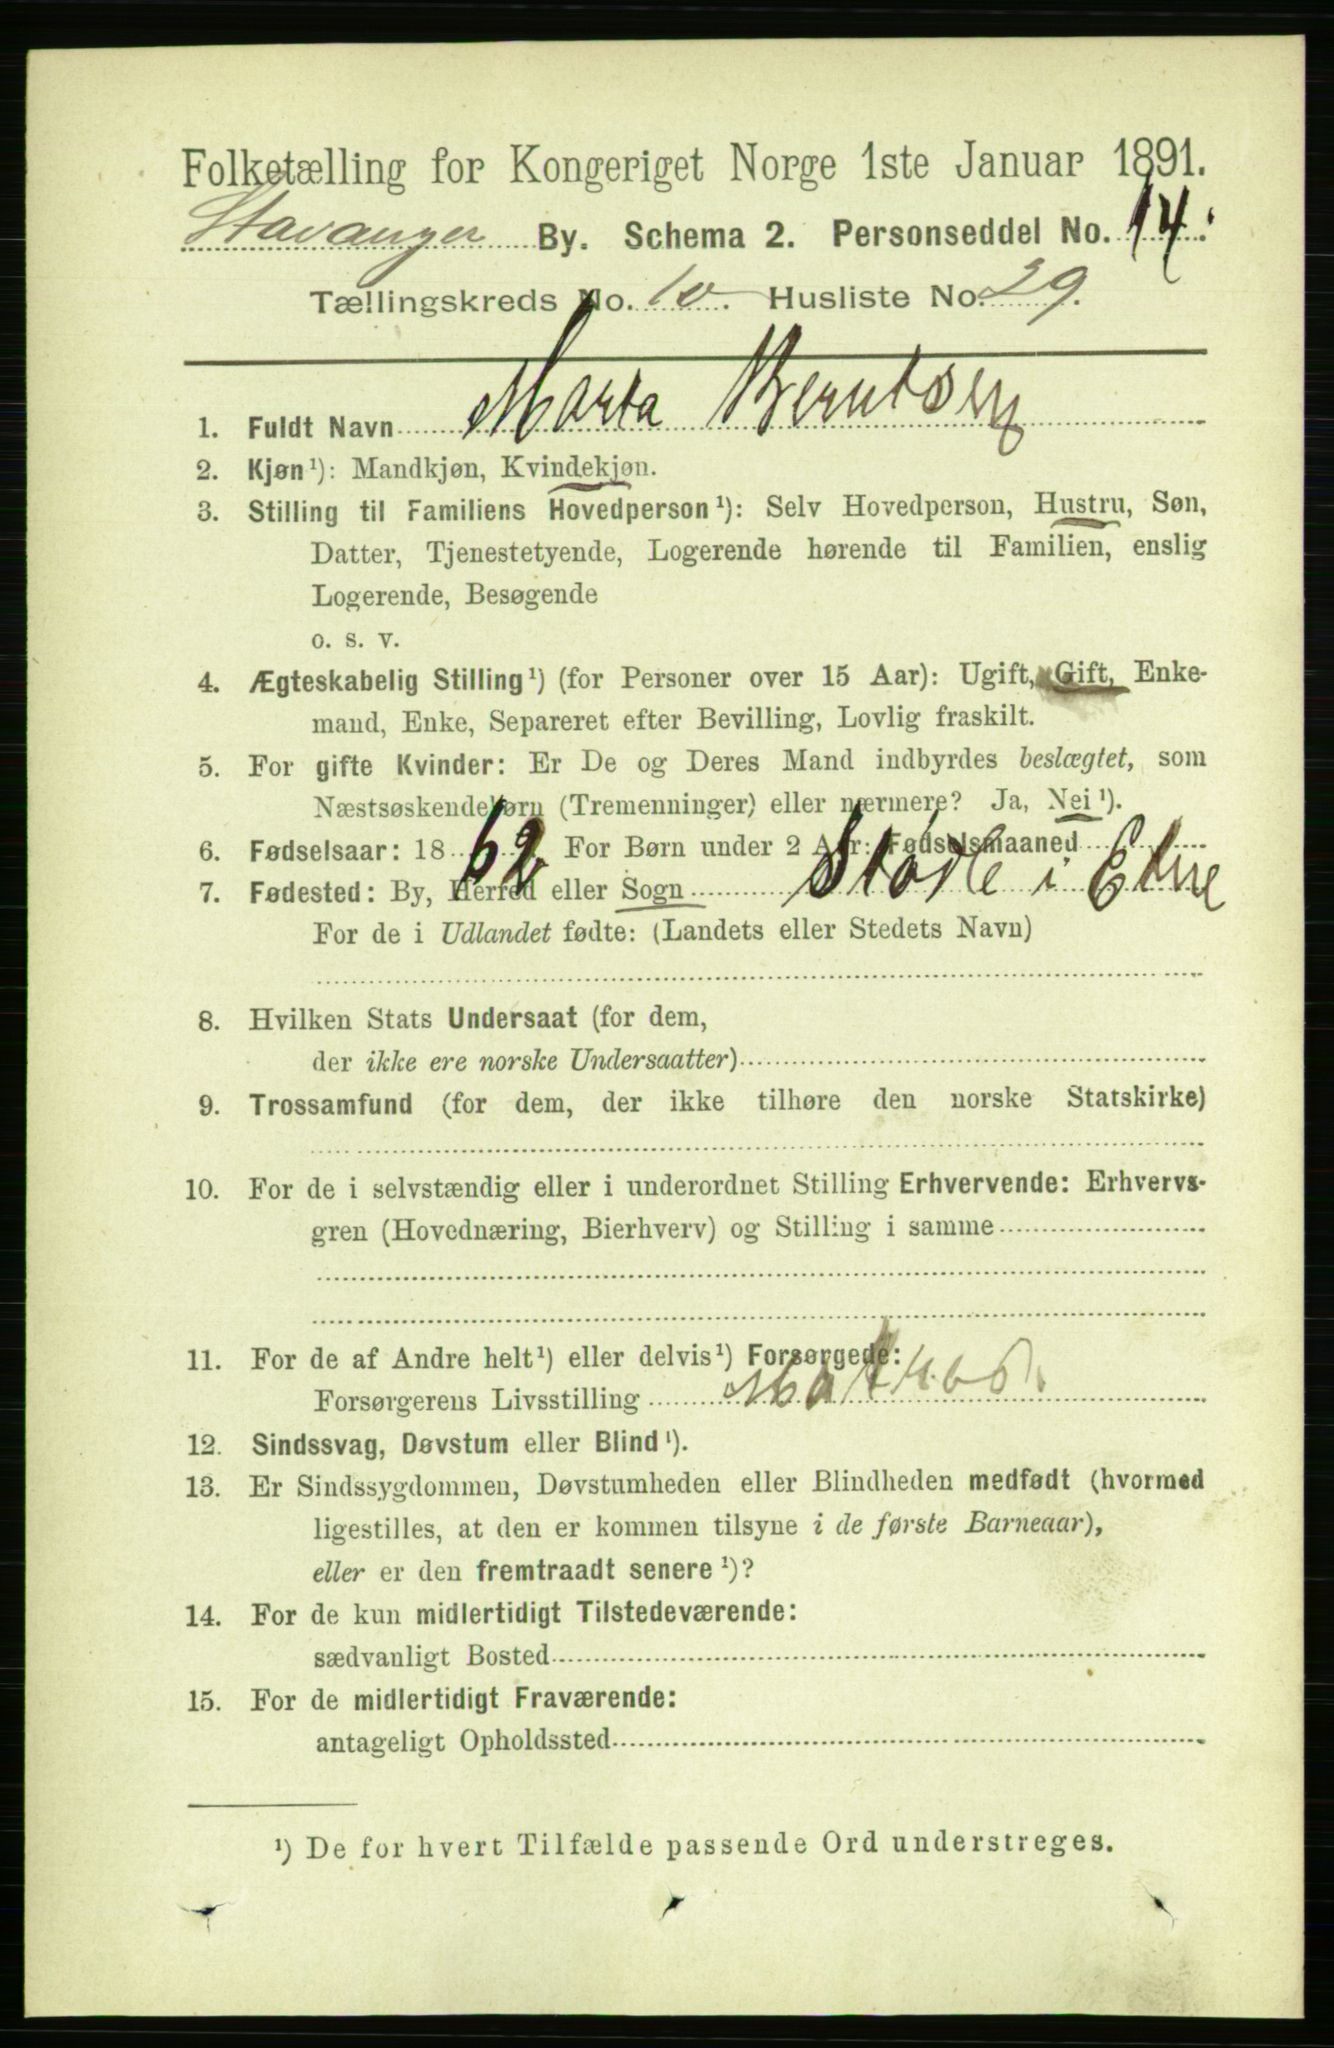 Folketælling for Kongeriget Norge 1ste Januar 1891.
Stavanger By. Schema 2. Personseddel No. 14.
Tællingskreds No. 10. Husliste No. 29.
1. Fuldt Navn Marta Berntsen
2. Kjøn¹): Mandkjøn, Kvindekjøn.
3. Stilling til Familiens Hovedperson¹): Selv Hovedperson, Hustru, Søn,
Datter, Tjenestetyende, Logerende hørende til Familien, enslig
Logerende, Besøgende
o. s. v.
4. Ægteskabelig Stilling¹) (for Personer over 15 Aar): Ugift, Gift, Enke-
mand, Enke, Separeret efter Bevilling, Lovlig fraskilt.
5. For gifte Kvinder: Er De og Deres Mand indbyrdes beslægtet, som
Næstsøskendebørn (Tremenninger) eller nærmere? Ja, Nei¹).
6. Fødselsaar: 18 62. For Børn under 2 Aar: Fødselsmaaned
7. Fødested: By, Herred eller Sogn Støle i Etne
For de i Udlandet fødte: (Landets eller Stedets Navn)
8. Hvilken Stats Undersaat (for dem,
der ikke ere norske Undersaatter)
9. Trossamfund (for dem, der ikke tilhøre den norske Statskirke)
10. For de i selvstændig eller i underordnet Stilling Erhvervende: Erhvervs-
gren (Hovednæring, Bierhverv) og Stilling i samme
11. For de af Andre helt¹) eller delvis¹) Forsørgede:
Forsørgerens Livsstilling Matros
12. Sindssvag, Døvstum eller Blind¹).
13. Er Sindssygdommen, Døvstumheden eller Blindheden medfødt (hvormed
ligestilles, at den er kommen tilsyne i de første Barneaar),
eller er den fremtraadt senere¹)?
14. For de kun midlertidigt Tilstedeværende:
sædvanligt Bosted
15. For de midlertidigt Fraværende:
antageligt Opholdssted
¹) De for hvert Tilfælde passende Ord understreges.